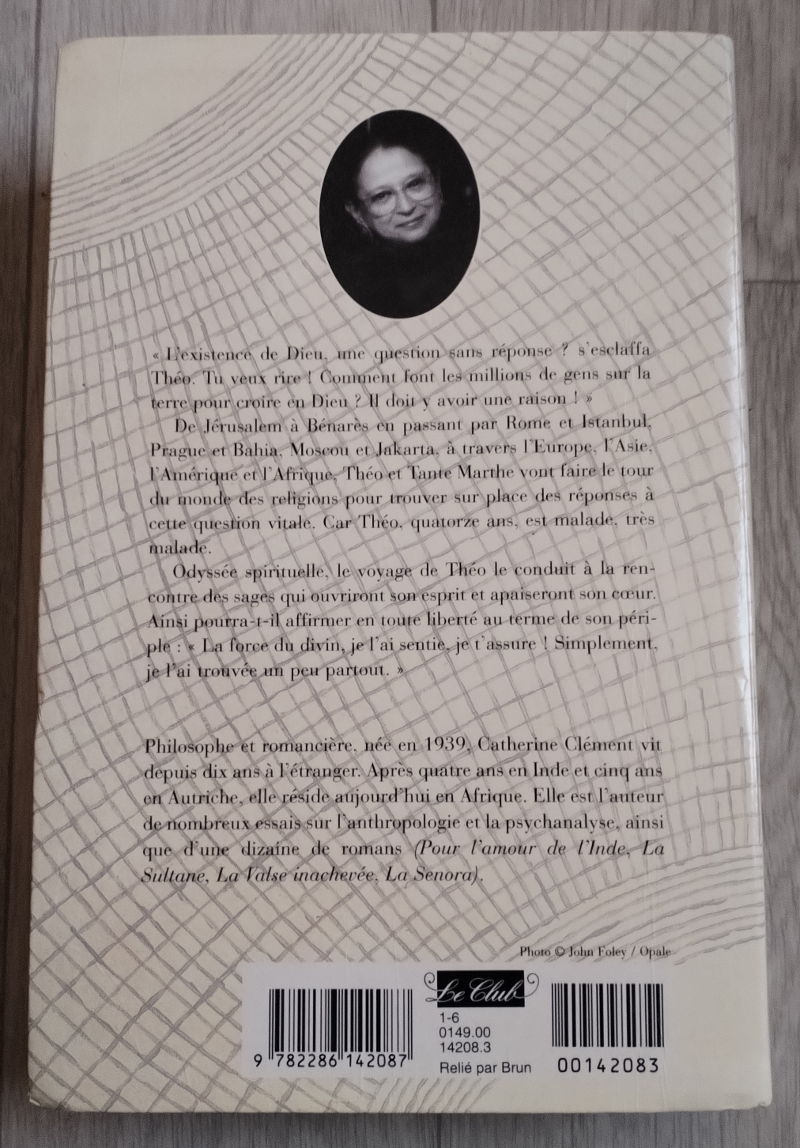 « L'existence de Dieu, une question sans réponse ? s'esclaffa
Théo. Tu veux rire ! Comment font les millions de gens sur la
terre pour croire en Dieu ? Il doit y avoir une raison ! »
De Jérusalem à Bénarès en passant par Rome et Istanbul,
Prague et Bahia, Moscou et Jakarta, à travers l'Europe, l'Asie,
l'Amérique et l'Afrique, Théo et Tante Marthe vont faire le tour
du monde des religions pour trouver sur place des réponses à
cette question vitale. Car Théo, quatorze ans, est malade, très
malade.
Odyssée spirituelle, le voyage de Théo le conduit à la ren-
contre des sages qui ouvriront son esprit et apaiseront son cœur.
Ainsi pourra-t-il affirmer en toute liberté au terme de son péri-
ple : « La force du divin, je l'ai sentie, je t'assure ! Simplement,
je l'ai trouvée un peu partout. »
Philosophe et romancière, née en 1939, Catherine Clément vit
depuis dix ans à l'étranger. Après quatre ans en Inde et cinq ans
en Autriche, elle réside aujourd'hui en Afrique. Elle est l'auteur
de nombreux essais sur l'anthropologie et la psychanalyse, ainsi
que d'une dizaine de romans (Pour l'amour de l'Inde, La
Sultane, La Valse inachevée, La Senora).
Photo © John Foley / Opale
Le Club
1-6
0149.00
14208.3
Relié par Brun
9 782286 142087
00142083